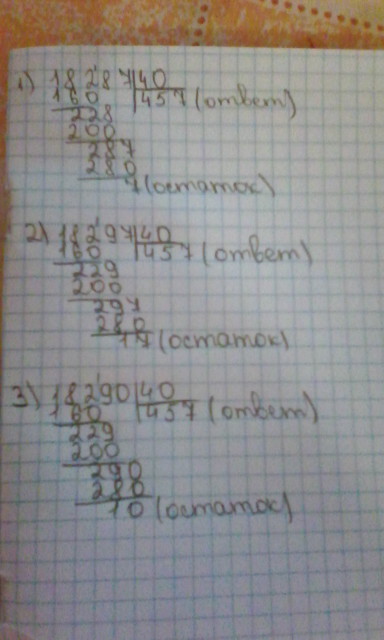 1) 18287|40
160 |457 (ответ)
228
200
287
280
7 (остаток)
2) 18297|40
160 |457 (ответ)
229
200
297
280
17 (остаток)
3) 18290|40
160 |457 (ответ)
229
200
290
280
10 (остаток)